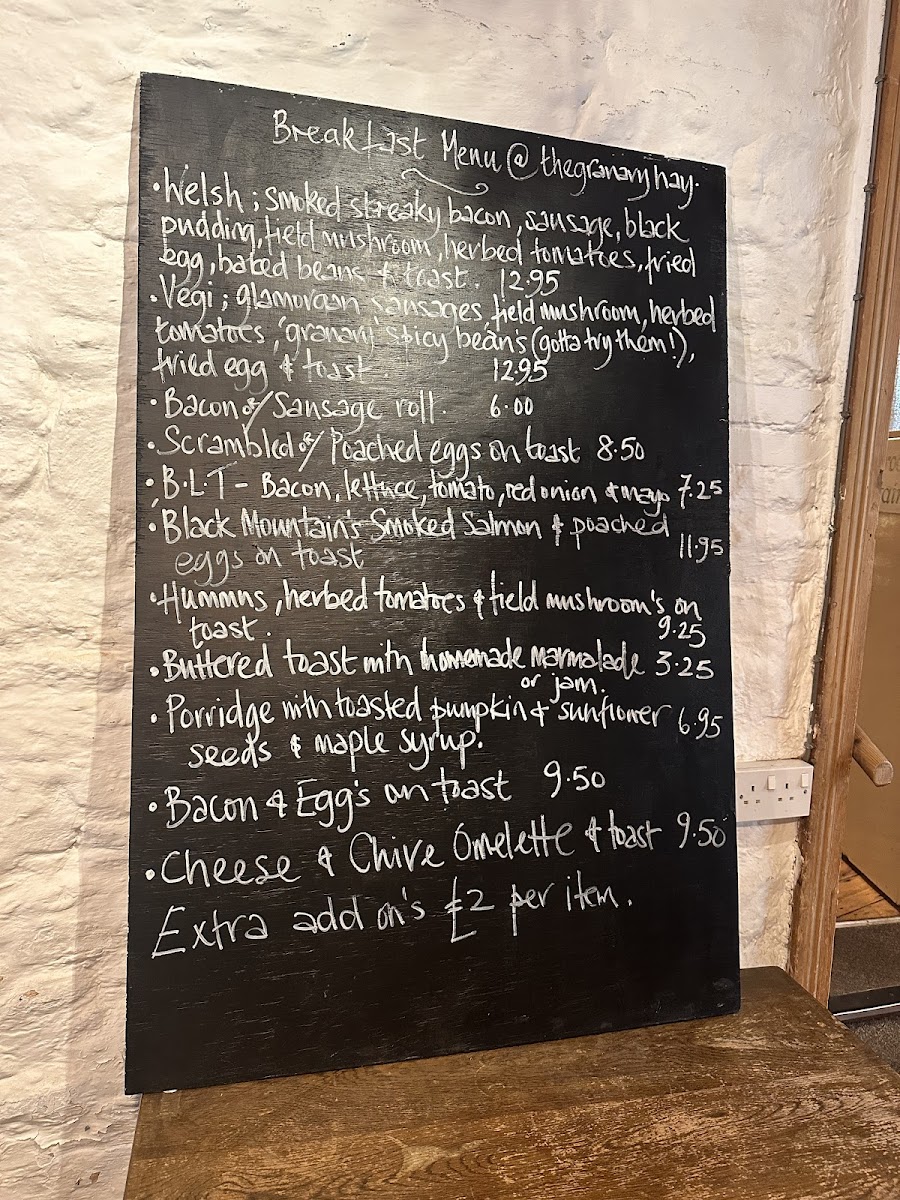 Breakfast Menu @ thegranaryhay.
• Welsh ; smoked streaky bacon, sausage, black
pudding, field mushroom, herbed tomatoes, fried
egg, baked beans & toast. 12.95
• Vegi ; glamorgan sausages, field mushroom, herbed
tomatoes, 'granary' spicy beans (gotta try them!),
fried egg & toast. 12.95
• Bacon or/ Sausage roll. 6.00
• Scrambled or/ Poached eggs on toast 8.50
• B.L.T - Bacon, lettuce, tomato, red onion & mayo 7.25
• Black Mountain's Smoked Salmon & poached
eggs on toast 11.95
• Hummus, herbed tomatoes & field mushroom's on
toast. 9.25
• Buttered toast with homemade marmalade 3.25
or jam.
• Porridge with toasted pumpkin & sunflower 6.95
seeds & maple syrup.
• Bacon & Egg's on toast 9.50
• Cheese & Chive Omelette & toast 9.50
Extra add on's £2 per item.